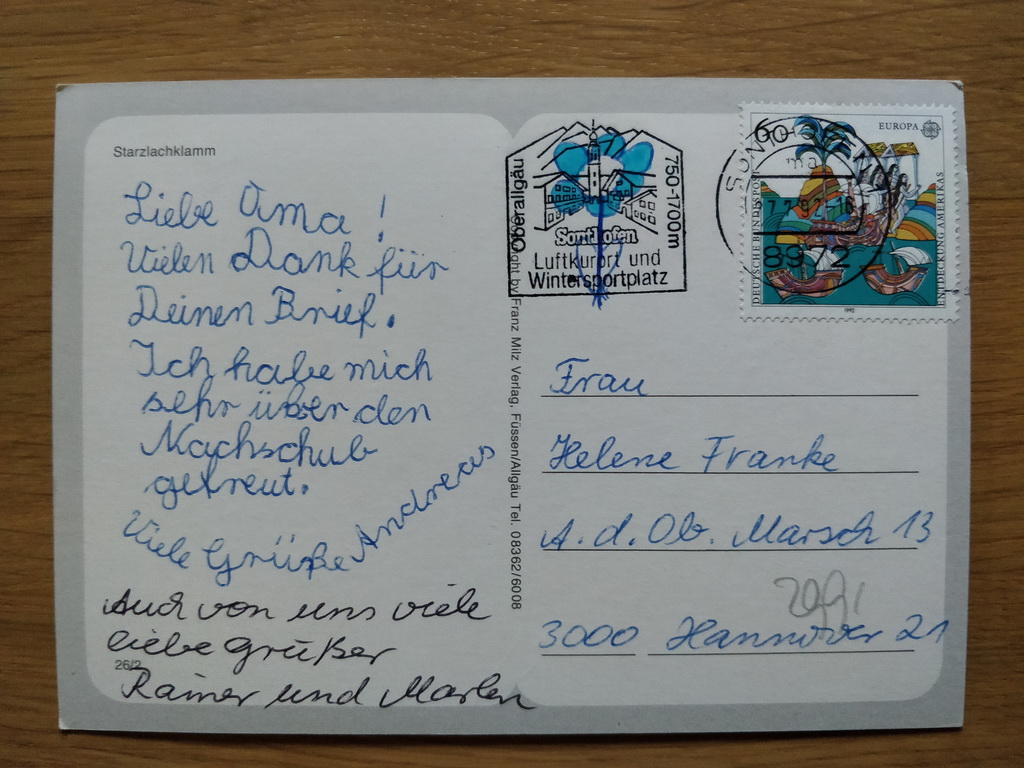 Starzlachklamm
Liebe Oma!
Vielen Dank für
Deinen Brief.
Ich habe mich
sehr über den
Nachschub
gefreut.
Viele Grüße Andreas
Auch von uns viele
liebe Grüße
26/2
Rainer und Marlen
Oberallgäu
750-1700m
Sonthofen
Luftkurort und
Wintersportplatz
by Franz Milz Verlag, Füssen/Allgäu Tel. 08362/6008
EUROPA
DEUTSCHE BUNDESPOST
ENTDECKUNG AMERIKAS
1992
SONTHOFEN
8972
Frau
Helene Franke
A. d. Ob. Marsch 13
3000 Hannover 21